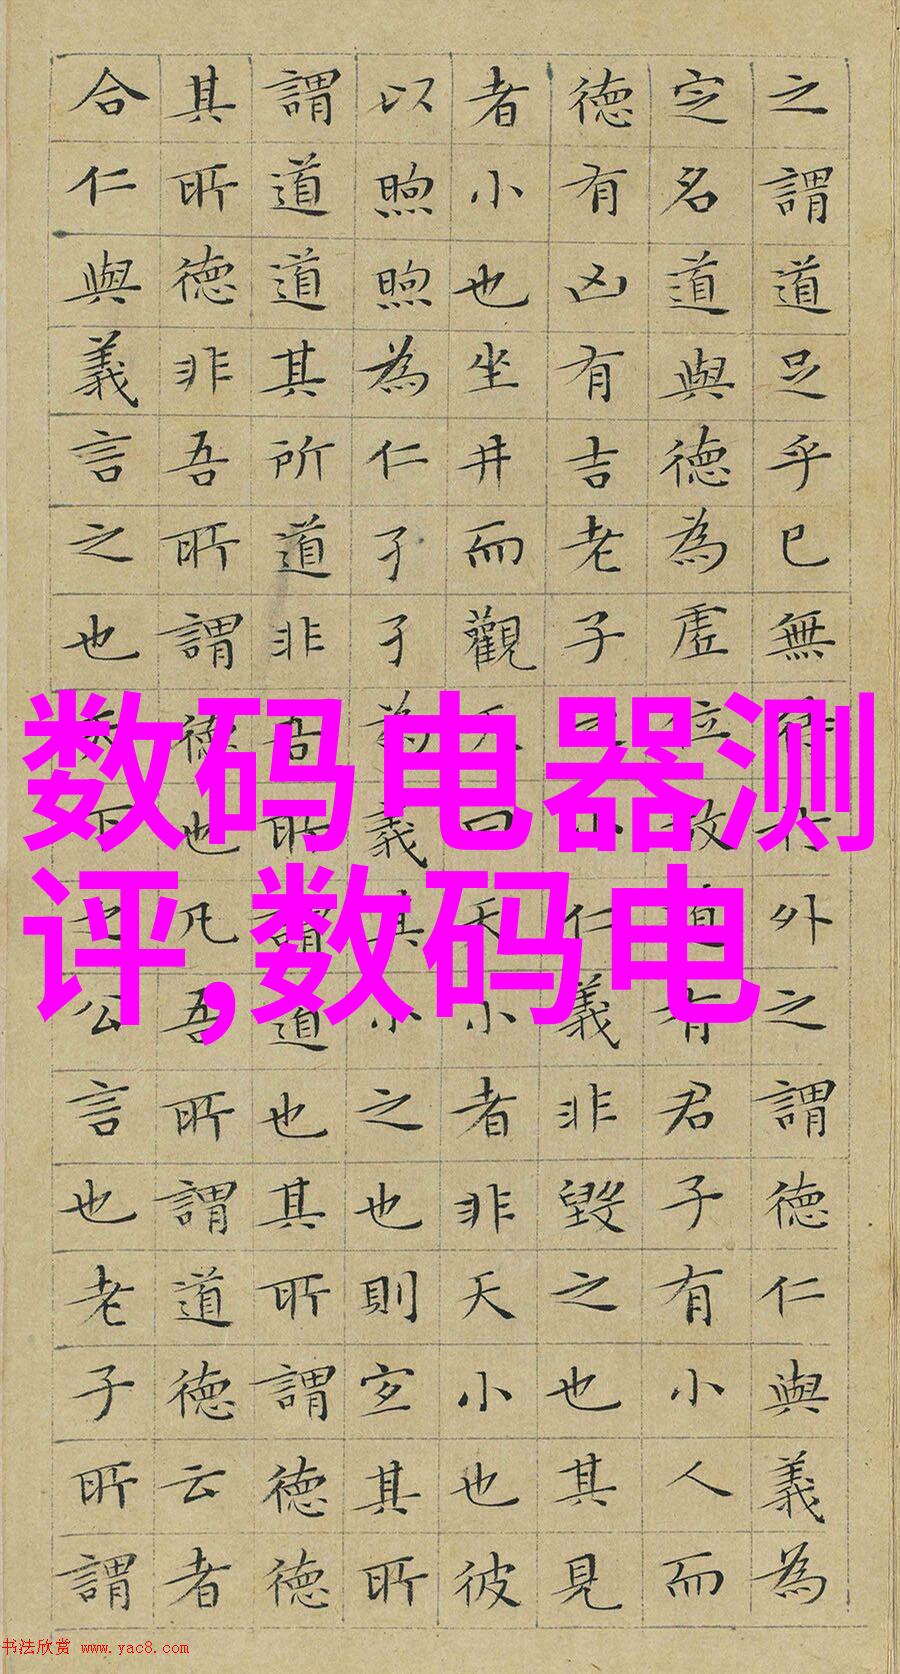 之謂道足乎已無待於外之謂德仁與義為
定名道與德為虛位故道有君子有小人而
德有凶有吉老子之小仁義非毀之也其見
者小也坐井而觀天曰天小者非天小也彼
以煦煦為仁孑孑為義其小之也則宜其所
謂道道其所道非吾所謂道也其所謂德德
其所德非吾所謂德也凡吾所謂道德云者
合仁與義言之也天下之公言也老子所謂
数码电器测
评,数码电
书法欣赏 www.yac8.com